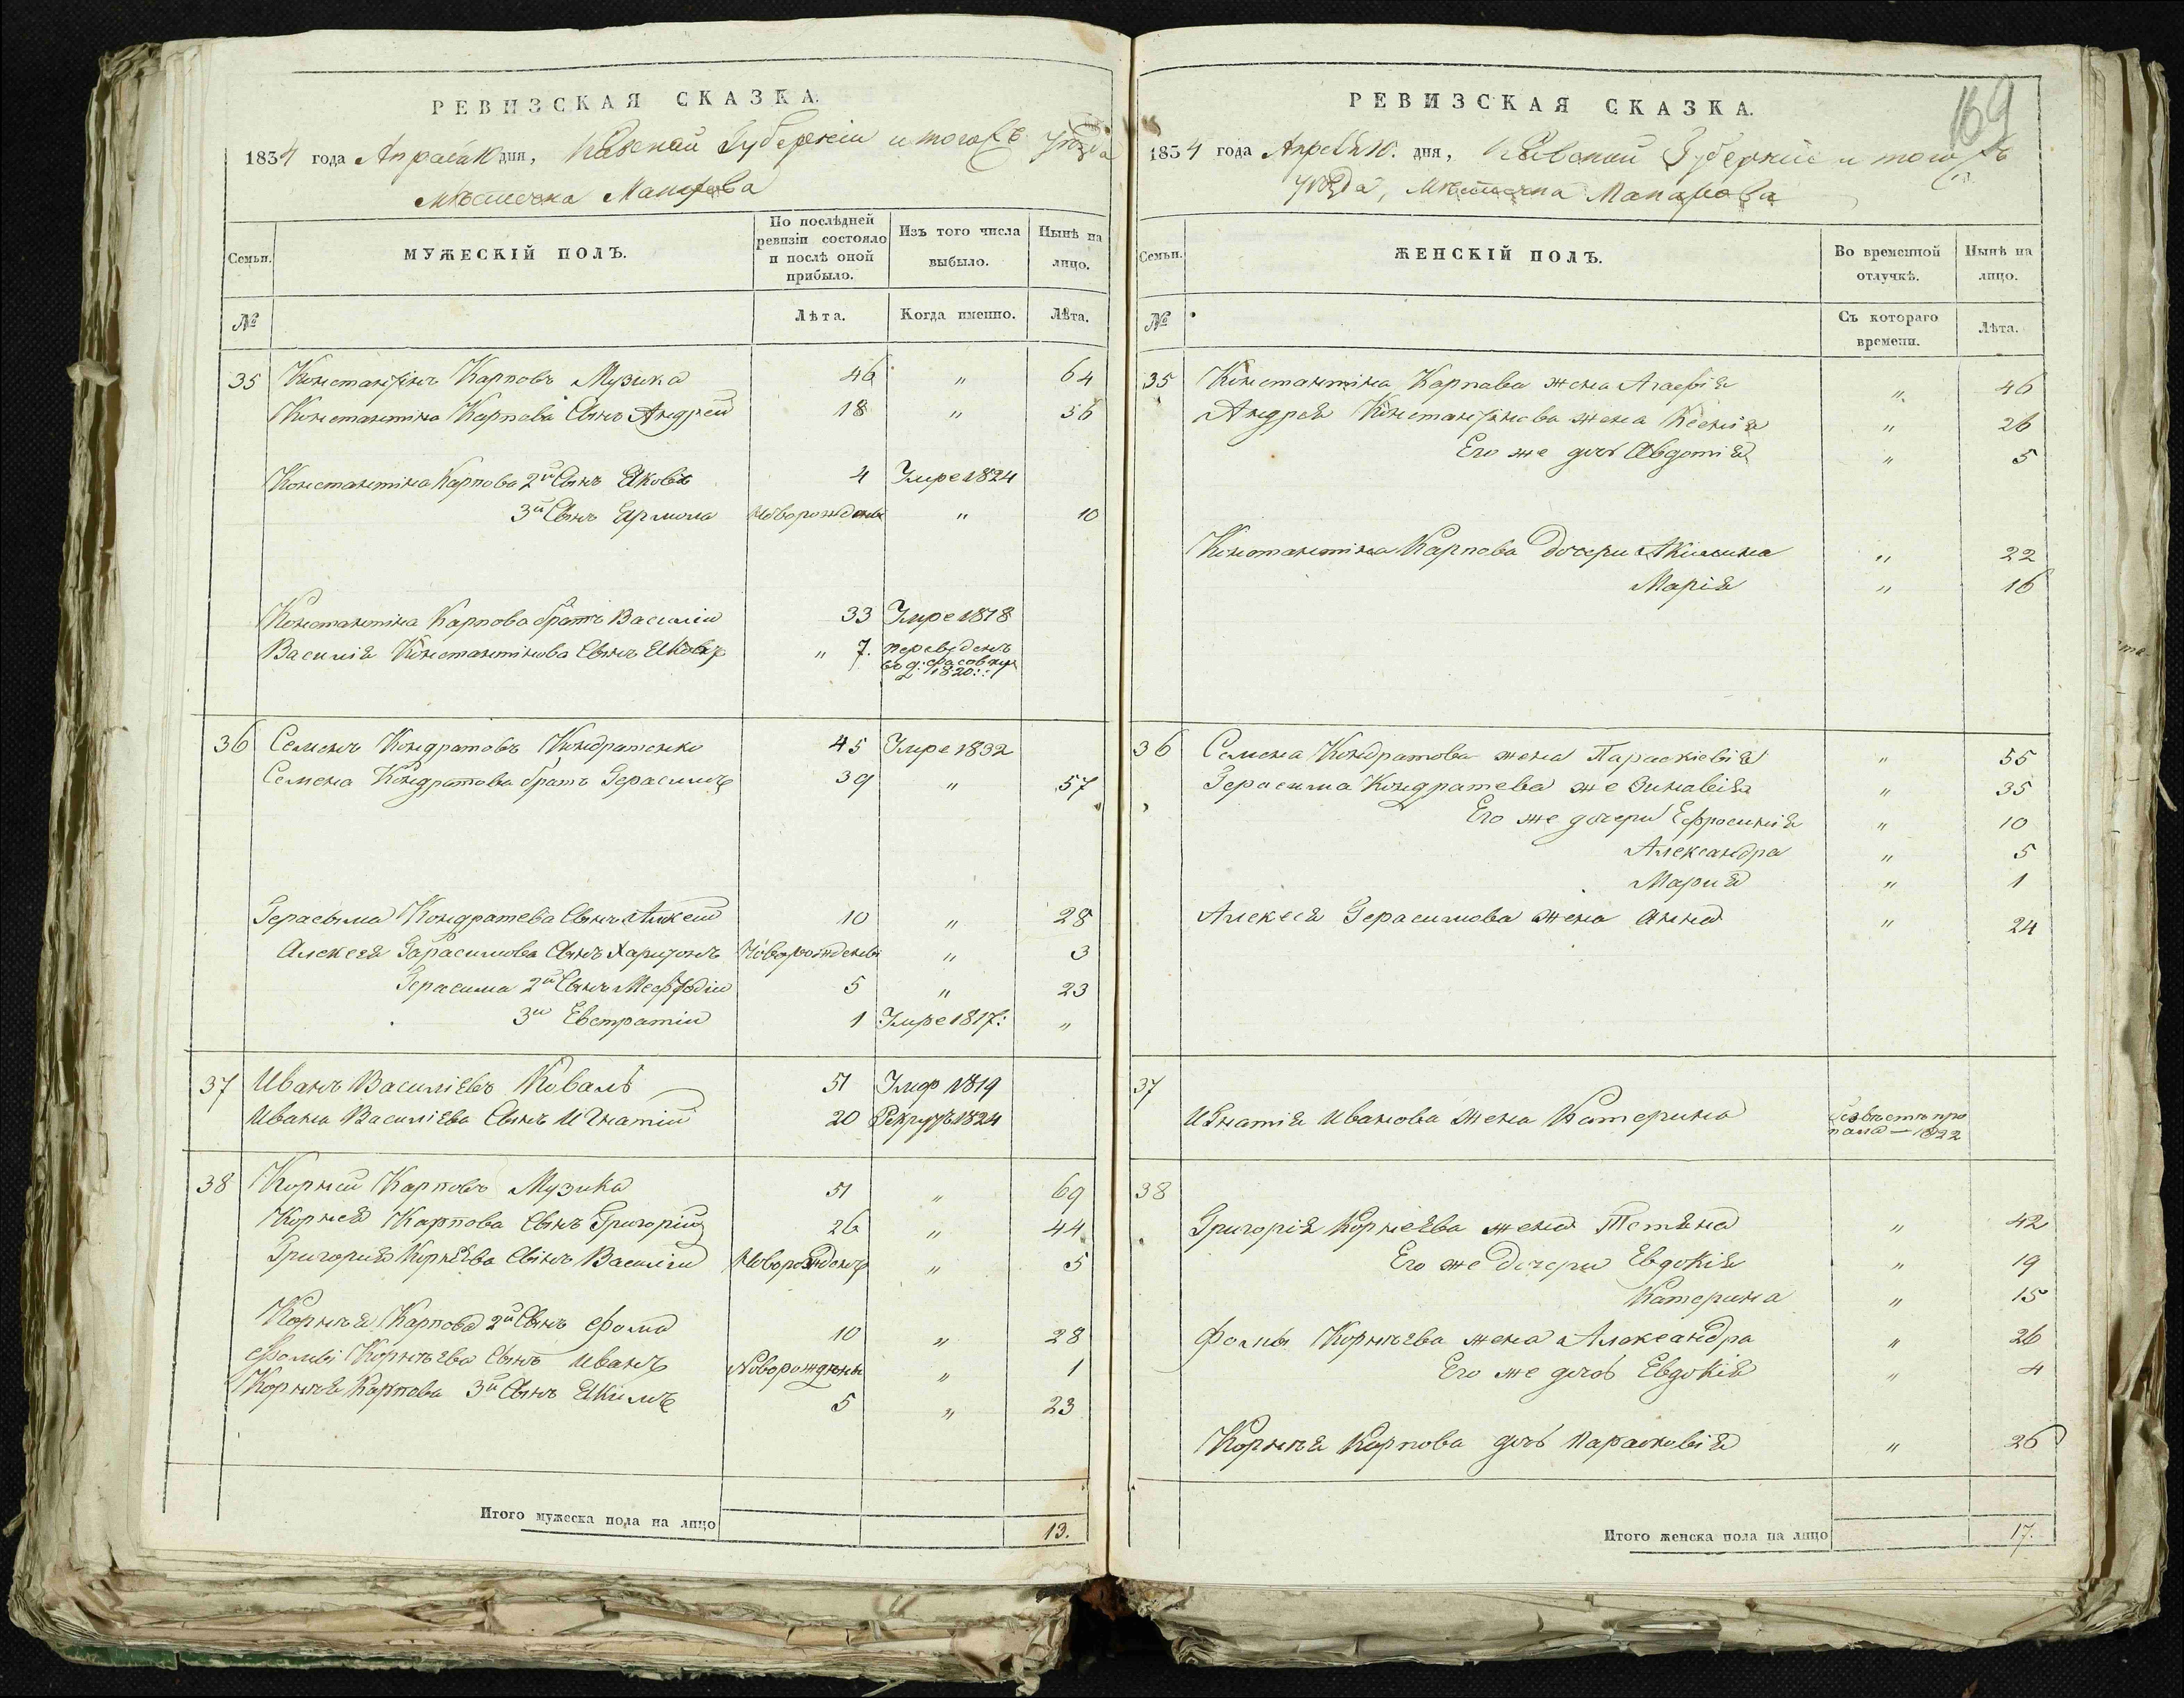 РЕВИЗСКАЯ СКАЗКА.
1834 года Апреля 10 дня, Киевской Губернiи и тогожъ Уѣзда
мѣстечка Макарова
Семьи.
МУЖЕСКIЙ ПОЛЪ.
По послѣдней ревизiи состояло и послѣ оной прибыло.
Изъ того числа выбыло.
Нынѣ на лицо.
№
Лѣта.
Когда именно.
Лѣта.
35 Константинъ Карповъ Музика 46 " 64
Константина Карпова Сынъ Андрей 18 " 36
Константина Карпова 2й Сынъ Яковъ 4 Умре 1824
3й Сынъ Ярмола Новорожденъ " 10
Константина Карпова братъ Василiй 33 Умре 1818
Василiя Константинова Сынъ Яковъ " 7. переведенъ
1820
36 Семенъ Кондратовъ Кондратенко 45 Умре 1832
Семена Кондратова братъ Герасимъ 39 " 57
Герасыма Кондратева Сынъ Алексей 10 " 28
Алексея Гарасимова Сынъ Харитонъ Новорожденъ " 3
Герасима 2й Сынъ Мефодiй 5 " 23
3й Евстратiй 1 Умре 1817: "
37 Иванъ Василiевъ Коваль 51 Умер 1819
Ивана Василiева Сынъ Игнатiй 20 Рекрутъ 1824
38 Корней Карповъ Музика 51 " 69
Корнея Карпова Сынъ Григорiй 26 " 44
Григория Корнѣева Сынъ Василiй Новорожденъ " 5
Корнѣя Карпова 2й Сынъ Фома 10 " 28
Фомы Корнѣева Сынъ Иванъ Новорожденъ " 1
Корнѣя Карпова 3й Сынъ Якимъ 5 " 23
Итого мужеска пола на лицо 13.
169
РЕВИЗСКАЯ СКАЗКА.
1834 года Апреля 10. дня, Киевской Губернiи и тогожъ
Уѣзда, Мѣстечка Макарова
Семьи.
ЖЕНСКIЙ ПОЛЪ.
Во временной отлучкѣ.
Нынѣ на лицо.
№
Съ котораго времени.
Лѣта.
35 Константина Карпова жена Агафiя " 46
Андрея Константинова жена Ксенiя " 26
Его же дочь Авдотiя " 5
Константина Карпова Дочери Акилина " 22
Марiя " 16
36 Семена Кондратова жена Параскiевiя " 55
Герасима Кондратева же Зинавiя " 35
Его же дочери Ефросинiя " 10
Александра " 5
Мария " 1
Алексея Герасимова жена Анна " 24
37
Игнатiя Иванова жена Катерина безвѣстъ про
пала — 1822
38
Григорiя Корнеева жена Тетяна " 42
Его же Дочери Евдокiя " 19
Катерина " 15
Фомы Корнѣева жена Александра " 26
Его же дочь Евдокiя " 4
Корнѣя Карпова дочь Парасковiя " 26
Итого женска пола на лицо 17.